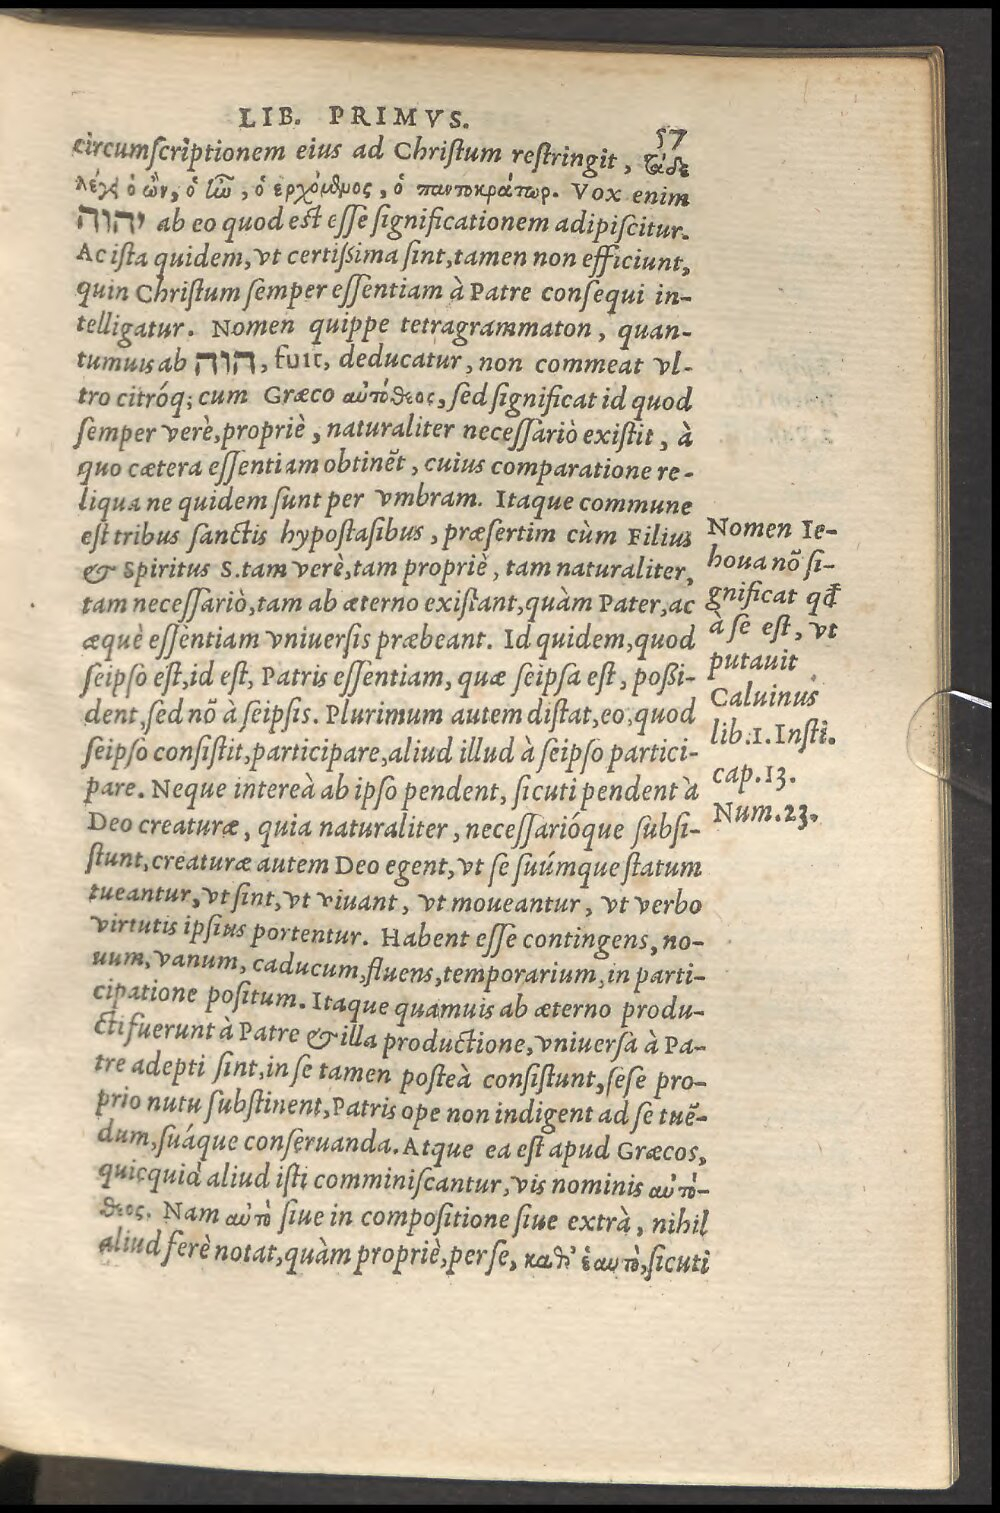 LIB. PRIMVS.
57
circumſcriptionem eius ad Chriſtum reſtringit, τάδε
λέγει ὁ ὢν, ὁ ἰῶ, ὁ ἐρχόμενος, ὁ παντοκράτωρ. Vox enim
יהוה ab eo quod eſt eſſe ſignificationem adipiſcitur.
Ac iſta quidem, vt certiſſima ſint, tamen non efficiunt,
quin Chriſtum ſemper eſſentiam à Patre conſequi in-
telligatur. Nomen quippe tetragrammaton, quan-
tumuis ab הוה, fuit, deducatur, non commeat vl-
tro citróq; cum Græco αὐτόθεος, ſed ſignificat id quod
ſemper verè, propriè, naturaliter neceſſariò exiſtit, à
quo cætera eſſentiam obtinẽt, cuius comparatione re-
liqua ne quidem ſunt per vmbram. Itaque commune
eſt tribus ſanctis hypoſtaſibus, præſertim cùm Filius
& Spiritus S. tam verè, tam propriè, tam naturaliter,
tam neceſſariò, tam ab æterno exiſtant, quàm Pater, ac
æquè eſſentiam vniuerſis præbeant. Id quidem, quod
ſeipſo eſt, id eſt, Patris eſſentiam, quæ ſeipſa eſt, poßi-
dent, ſed nõ à ſeipſis. Plurimum autem diſtat, eo, quod
ſeipſo conſiſtit, participare, aliud illud à ſeipſo partici-
pare. Neque intereà ab ipſo pendent, ſicuti pendent à
Deo creaturæ, quia naturaliter, neceſſarióque ſubſi-
ſtunt, creaturæ autem Deo egent, vt ſe ſuúmque ſtatum
tueantur, vt ſint, vt viuant, vt moueantur, vt verbo
virtutis ipſius portentur. Habent eſſe contingens, no-
uum, vanum, caducum, fluens, temporarium, in parti-
cipatione poſitum. Itaque quamuis ab æterno produ-
cti fuerunt à Patre & illa productione, vniuerſa à Pa-
tre adepti ſint, in ſe tamen poſteà conſiſtunt, ſeſe pro-
prio nutu ſubſtinent, Patris ope non indigent ad ſe tuẽ-
dum, ſuáque conſeruanda. Atque ea eſt apud Græcos,
quicquid aliud iſti comminiſcantur, vis nominis αὐτό-
θεος. Nam αὐτὸ ſiue in compoſitione ſiue extrà, nihil
aliud ferè notat, quàm propriè, per ſe, καθ' ἑαυτὸ, ſicuti
Nomen Ie-
houa nõ ſi-
gnificat qđ
à ſe eſt, vt
putauit
Caluinus
lib.1. Inſti.
cap.13.
Num.23.